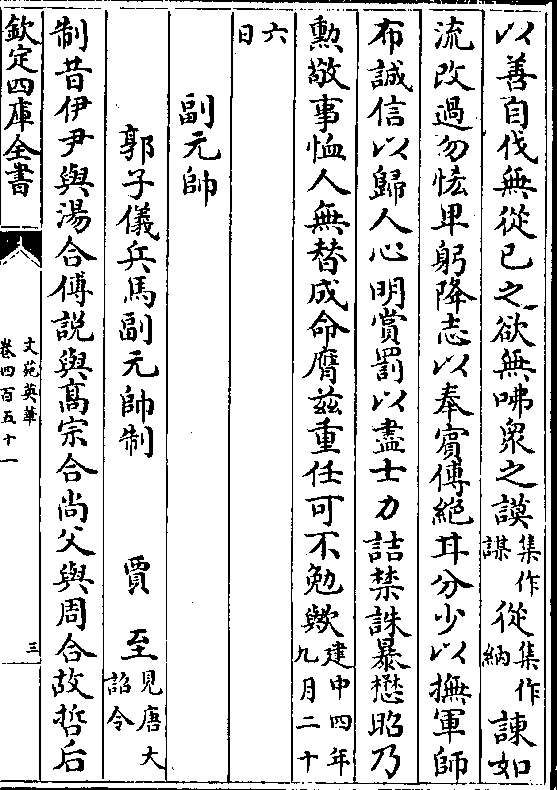 以善自伐無從已之欲無咈衆之謨集作謀從集作納諫如
流改過勿恡卑躬降志以奉賓傅絶甘分少以撫軍師
布誠信以歸人心明賞罰以盡士力詰禁誅暴懋昭乃
勲敬事恤人無替成命膺兹重任可不勉歟建中四年九月二十
六日
副元帥
郭子儀兵馬副元帥制 賈至見唐大詔令
制昔伊尹與湯合傅説與髙宗合尚父與周合故哲后
欽定四庫全書
文苑英華
卷四百五十一
三